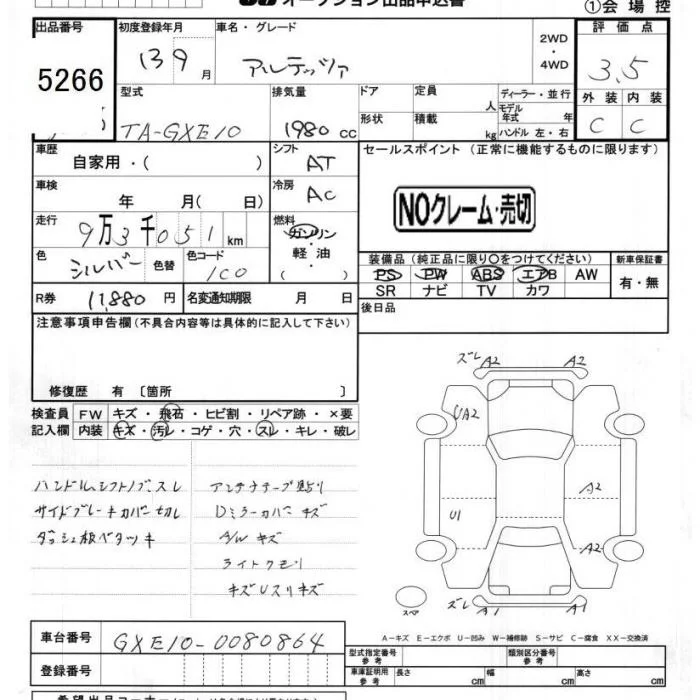 オークション出品申込書
①会場控
出品番号 初度登録年月 車名・グレード 評価点
5266 13 9月 アルテッツァ 2WD・4WD 3.5
型式 排気量 ドア 定員 人 ディーラー・並行 外装 内装
TA-GXE10 1980 cc 形状 積載 kg モデル年式 年 ハンドル 左・右 C C
車歴 自家用・( ) シフト AT セールスポイント(正常に機能するものに限ります)
車検 年 月( 日) 冷房 AC
NOクレーム・売切
走行 9万3千051km 燃料 ガソリン・軽油・( )
色 シルバー 色替 色コード 1C0
装備品(純正品に限り○をつけてください) 新車保証書
PS PW ABS エアB AW 有・無
SR ナビ TV カワ
R券 11,880 円 名変通知期限 月 日 後日品
注意事項申告欄(不具合内容等は具体的に記入して下さい)
修復歴 有 〔箇所 〕
検査員 FW キズ・飛石・ヒビ割・リペア跡・×要
記入欄 内装 キズ・汚レ・コゲ・穴・スレ・キレ・破レ
ハンドル、シフトノブスレ
サイドブレーキカバー切レ
ダッシュ板ベタツキ
アンテナテープ貼り
Dミラーカバーキズ
A/Wキズ
ライトクモリ
キズUスリキズ
ズレ A2 A2
UA2
A2
U1
A2
スペア
ズレ A1 A1
A-キズ E-エクボ U-凹み W-補修跡 S-サビ C-腐食 XX-交換済
車台番号 GXE10-0080864
登録番号
型式指定番号 参考 類別区分番号 参考
車庫証明用 参考 長さ cm 幅 cm 高さ cm